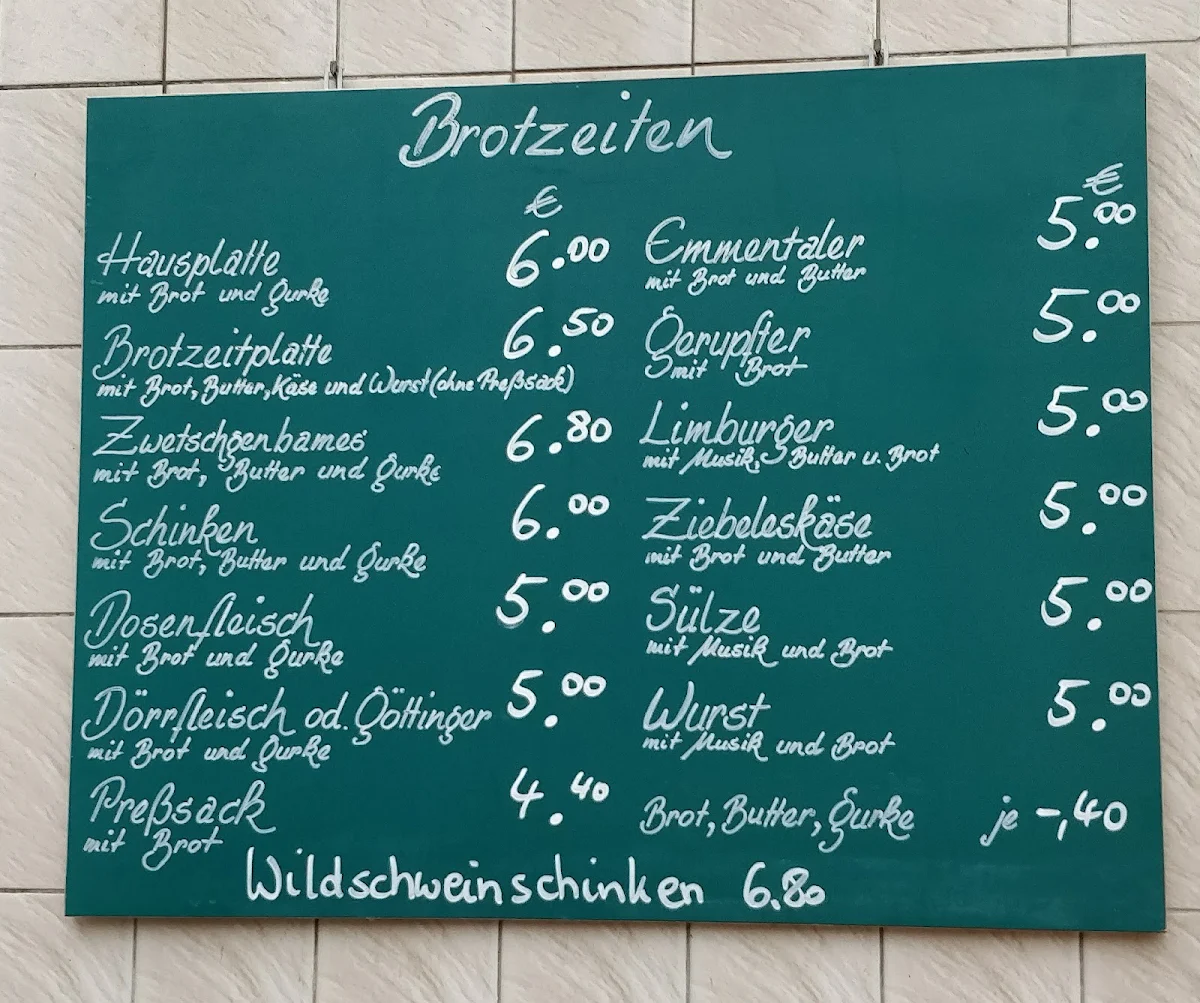 Brotzeiten
€
Hausplatte 6.00
mit Brot und Gurke
Brotzeitplatte 6.50
mit Brot, Butter, Käse und Wurst (ohne Preßsack)
Zwetschgenbames 6.80
mit Brot, Butter und Gurke
Schinken 6.00
mit Brot, Butter und Gurke
Dosenfleisch 5.00
mit Brot und Gurke
Dörrfleisch od. Göttinger 5.00
mit Brot und Gurke
Preßsack 4.40
mit Brot
€
Emmentaler 5.00
mit Brot und Butter
Gerupfter 5.00
mit Brot
Limburger 5.00
mit Musik, Butter u. Brot
Ziebeleskäse 5.00
mit Brot und Butter
Sülze 5.00
mit Musik und Brot
Wurst 5.00
mit Musik und Brot
Brot, Butter, Gurke je -,40
Wildschweinschinken 6.80